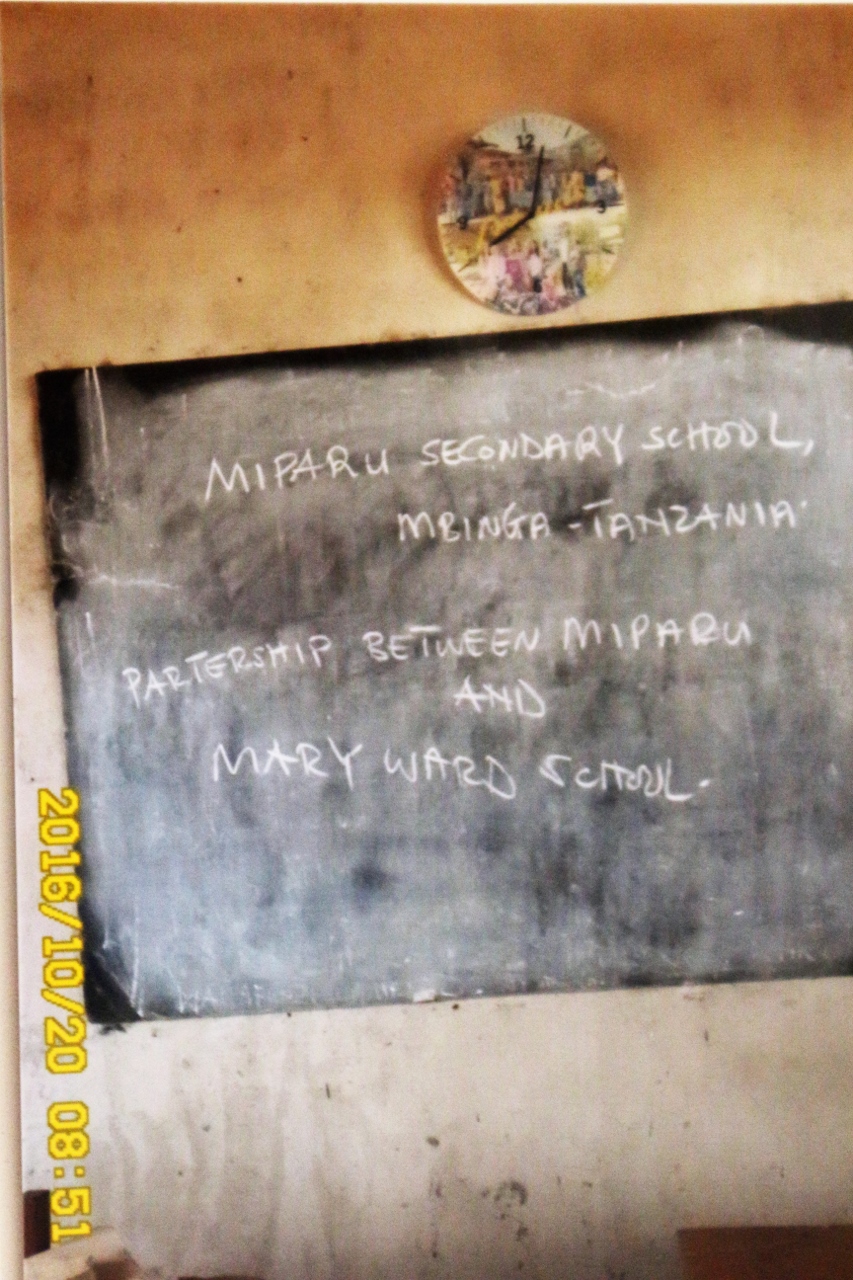 12
3
9
MIPARU SECONDARY SCHOOL,
MBINGA - TANZANIA.
PARTERSHIP BETWEEN MIPARU
AND
MARY WARD SCHOOL.
2016/10/20 08:51